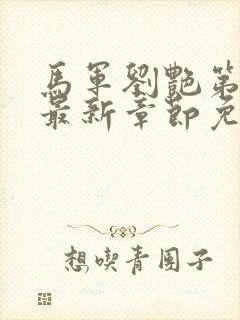 馬軍劉艷第
最新章節免
想喫青團子